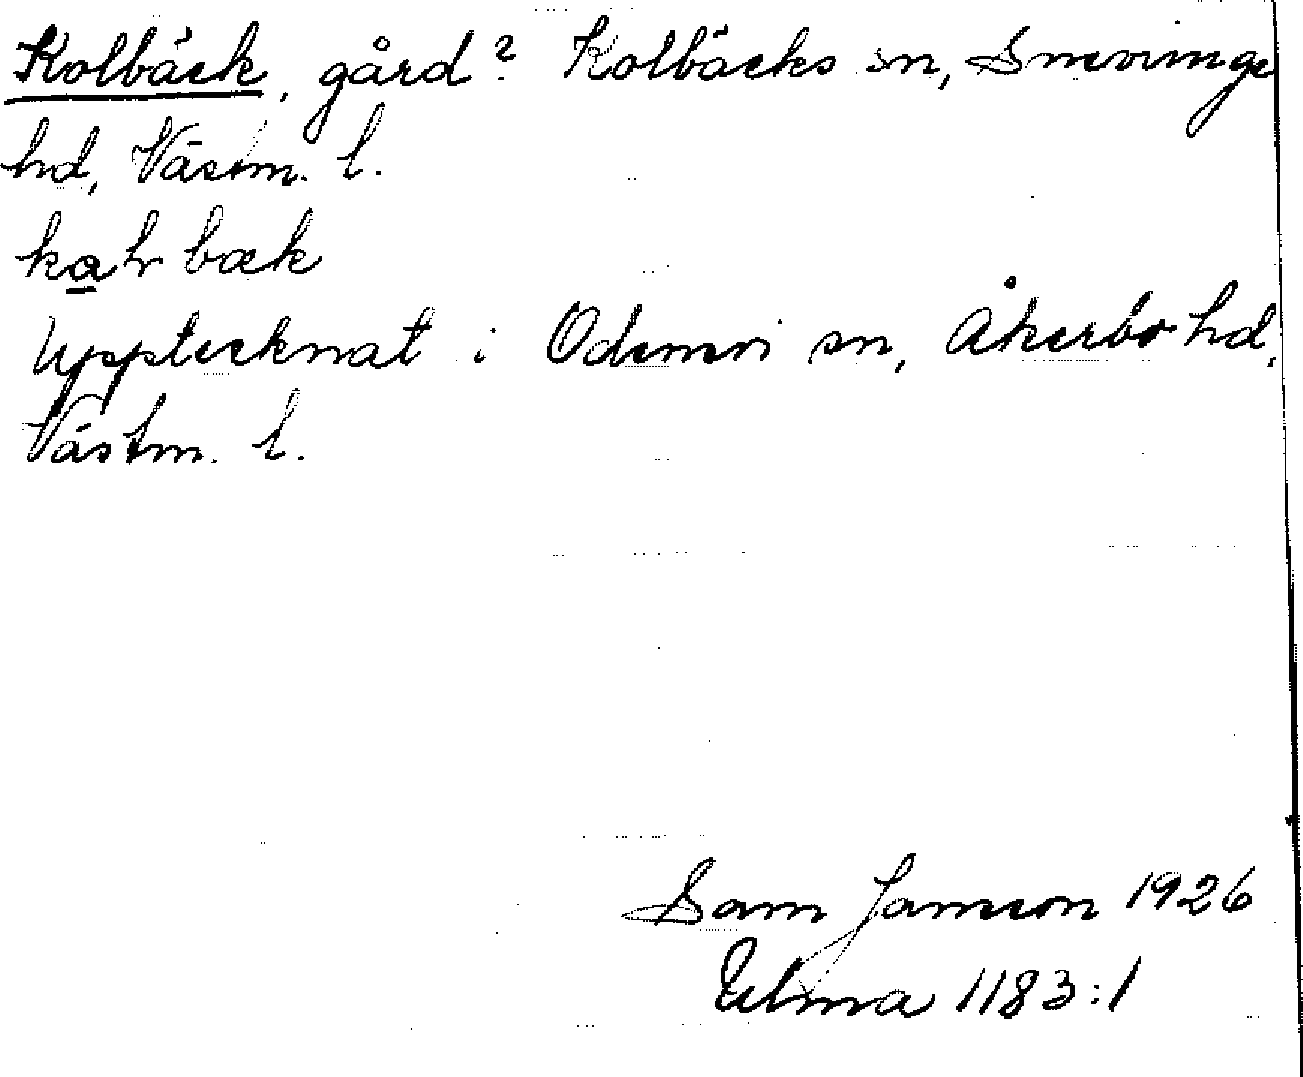 Kolbäck, gård? Kolbäcks sn, Snevringe
hd, Västm. l.
bæk
Upptecknat i Odensvi sn, Åkerbo hd,
Västm. l.
Sam Jansson 1926
Ulma 1183:1